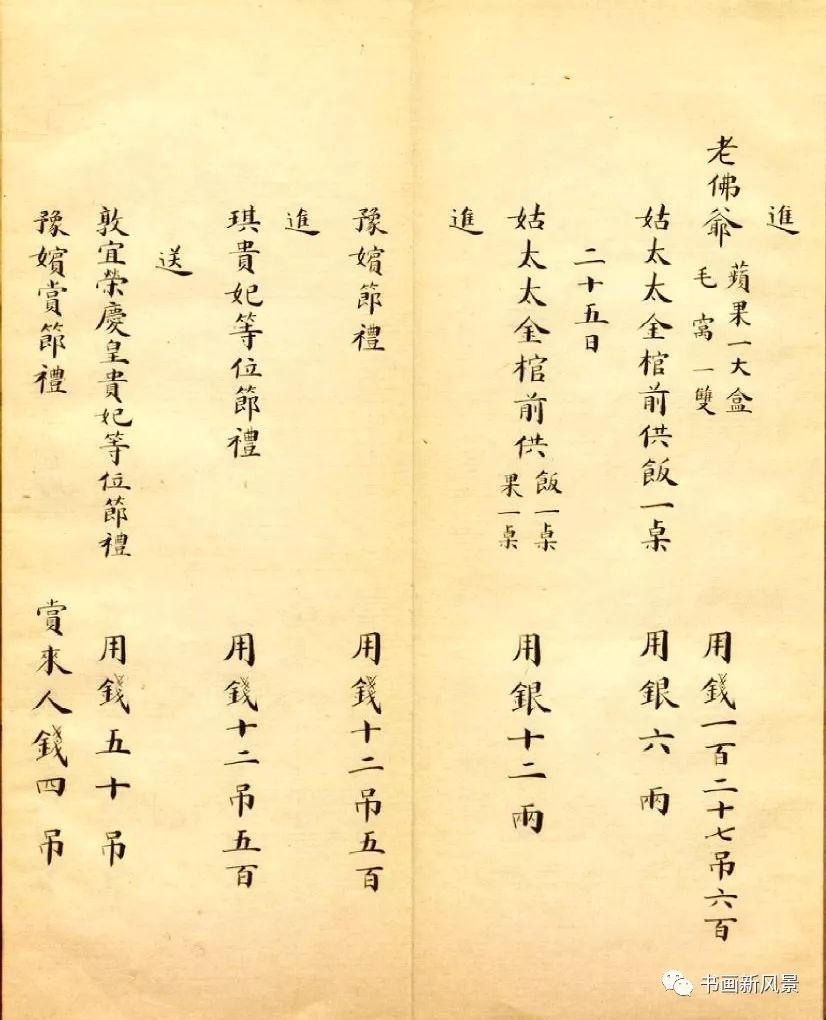 進
老佛爺 蘋果一大盒 毛窩一雙 用錢一百二十七吊六百
姑太太金棺前供飯一桌 用銀六兩
二十五日
姑太太金棺前供 飯一桌 果一桌 用銀十二兩
進
豫嬪節禮 用錢十二吊五百
進
琪貴妃等位節禮 用錢十二吊五百
送
敦宜榮慶皇貴妃等位節禮 用錢五十吊
豫嬪賞節禮 賞來人錢四吊
书画新风景